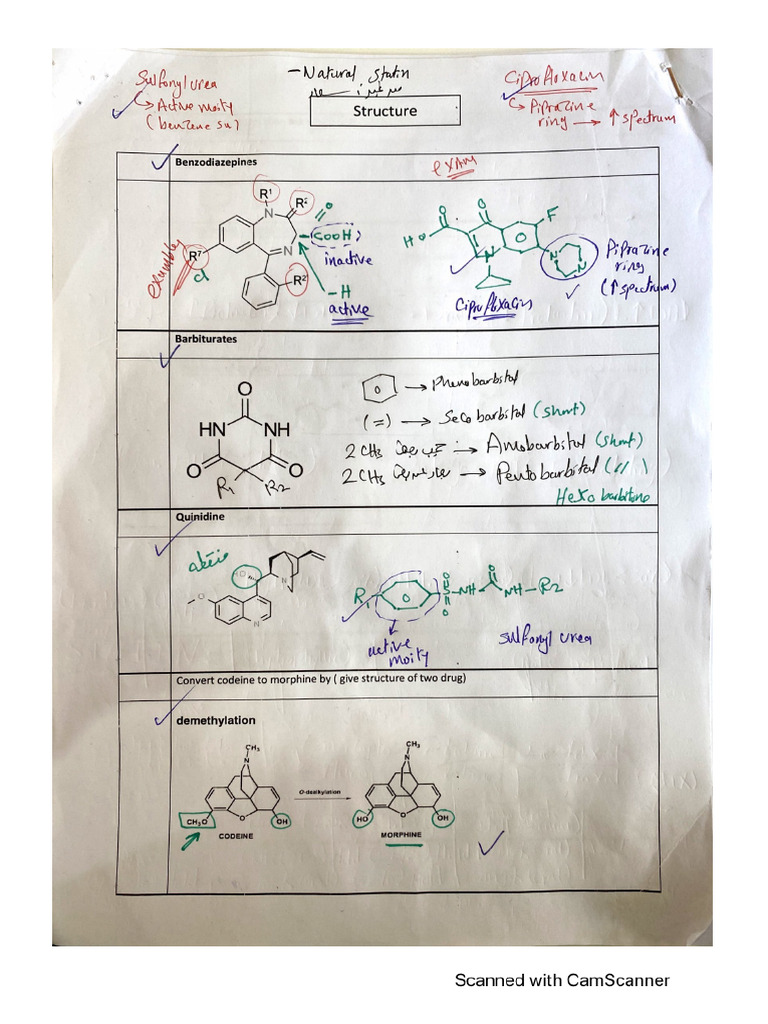 Sulfonyl urea
Active moity
(benzene su2)
- Natural statin
Structure
Ciprofloxacin
Piprazine
ring → ↑ spectrum
Benzodiazepines
exam
R¹
N
R²
COOH
inactive
N
R⁷
cl
R²
-H
active
O
O
F
HO
N
N
N
Ciprofloxacin
Piprazine
ring
(↑ spectrum)
Barbiturates
O
HN
NH
O
O
R1
R2
→ Phenobarbital
(=) → Seco barbital (short)
2 CH3 → Amobarbital (short)
2 CH3 → Pentobarbital (〃)
Hexobarbitone
Quinidine
HO
N
O
N
R1
O
S
O
NH
O
NH-R2
active
moity
sulfonyl urea
Convert codeine to morphine by ( give structure of two drug)
demethylation
CH₃
N
CH₃O
O
OH
CODEINE
O-dealkylation
CH₃
N
HO
O
OH
MORPHINE
Scanned with CamScanner